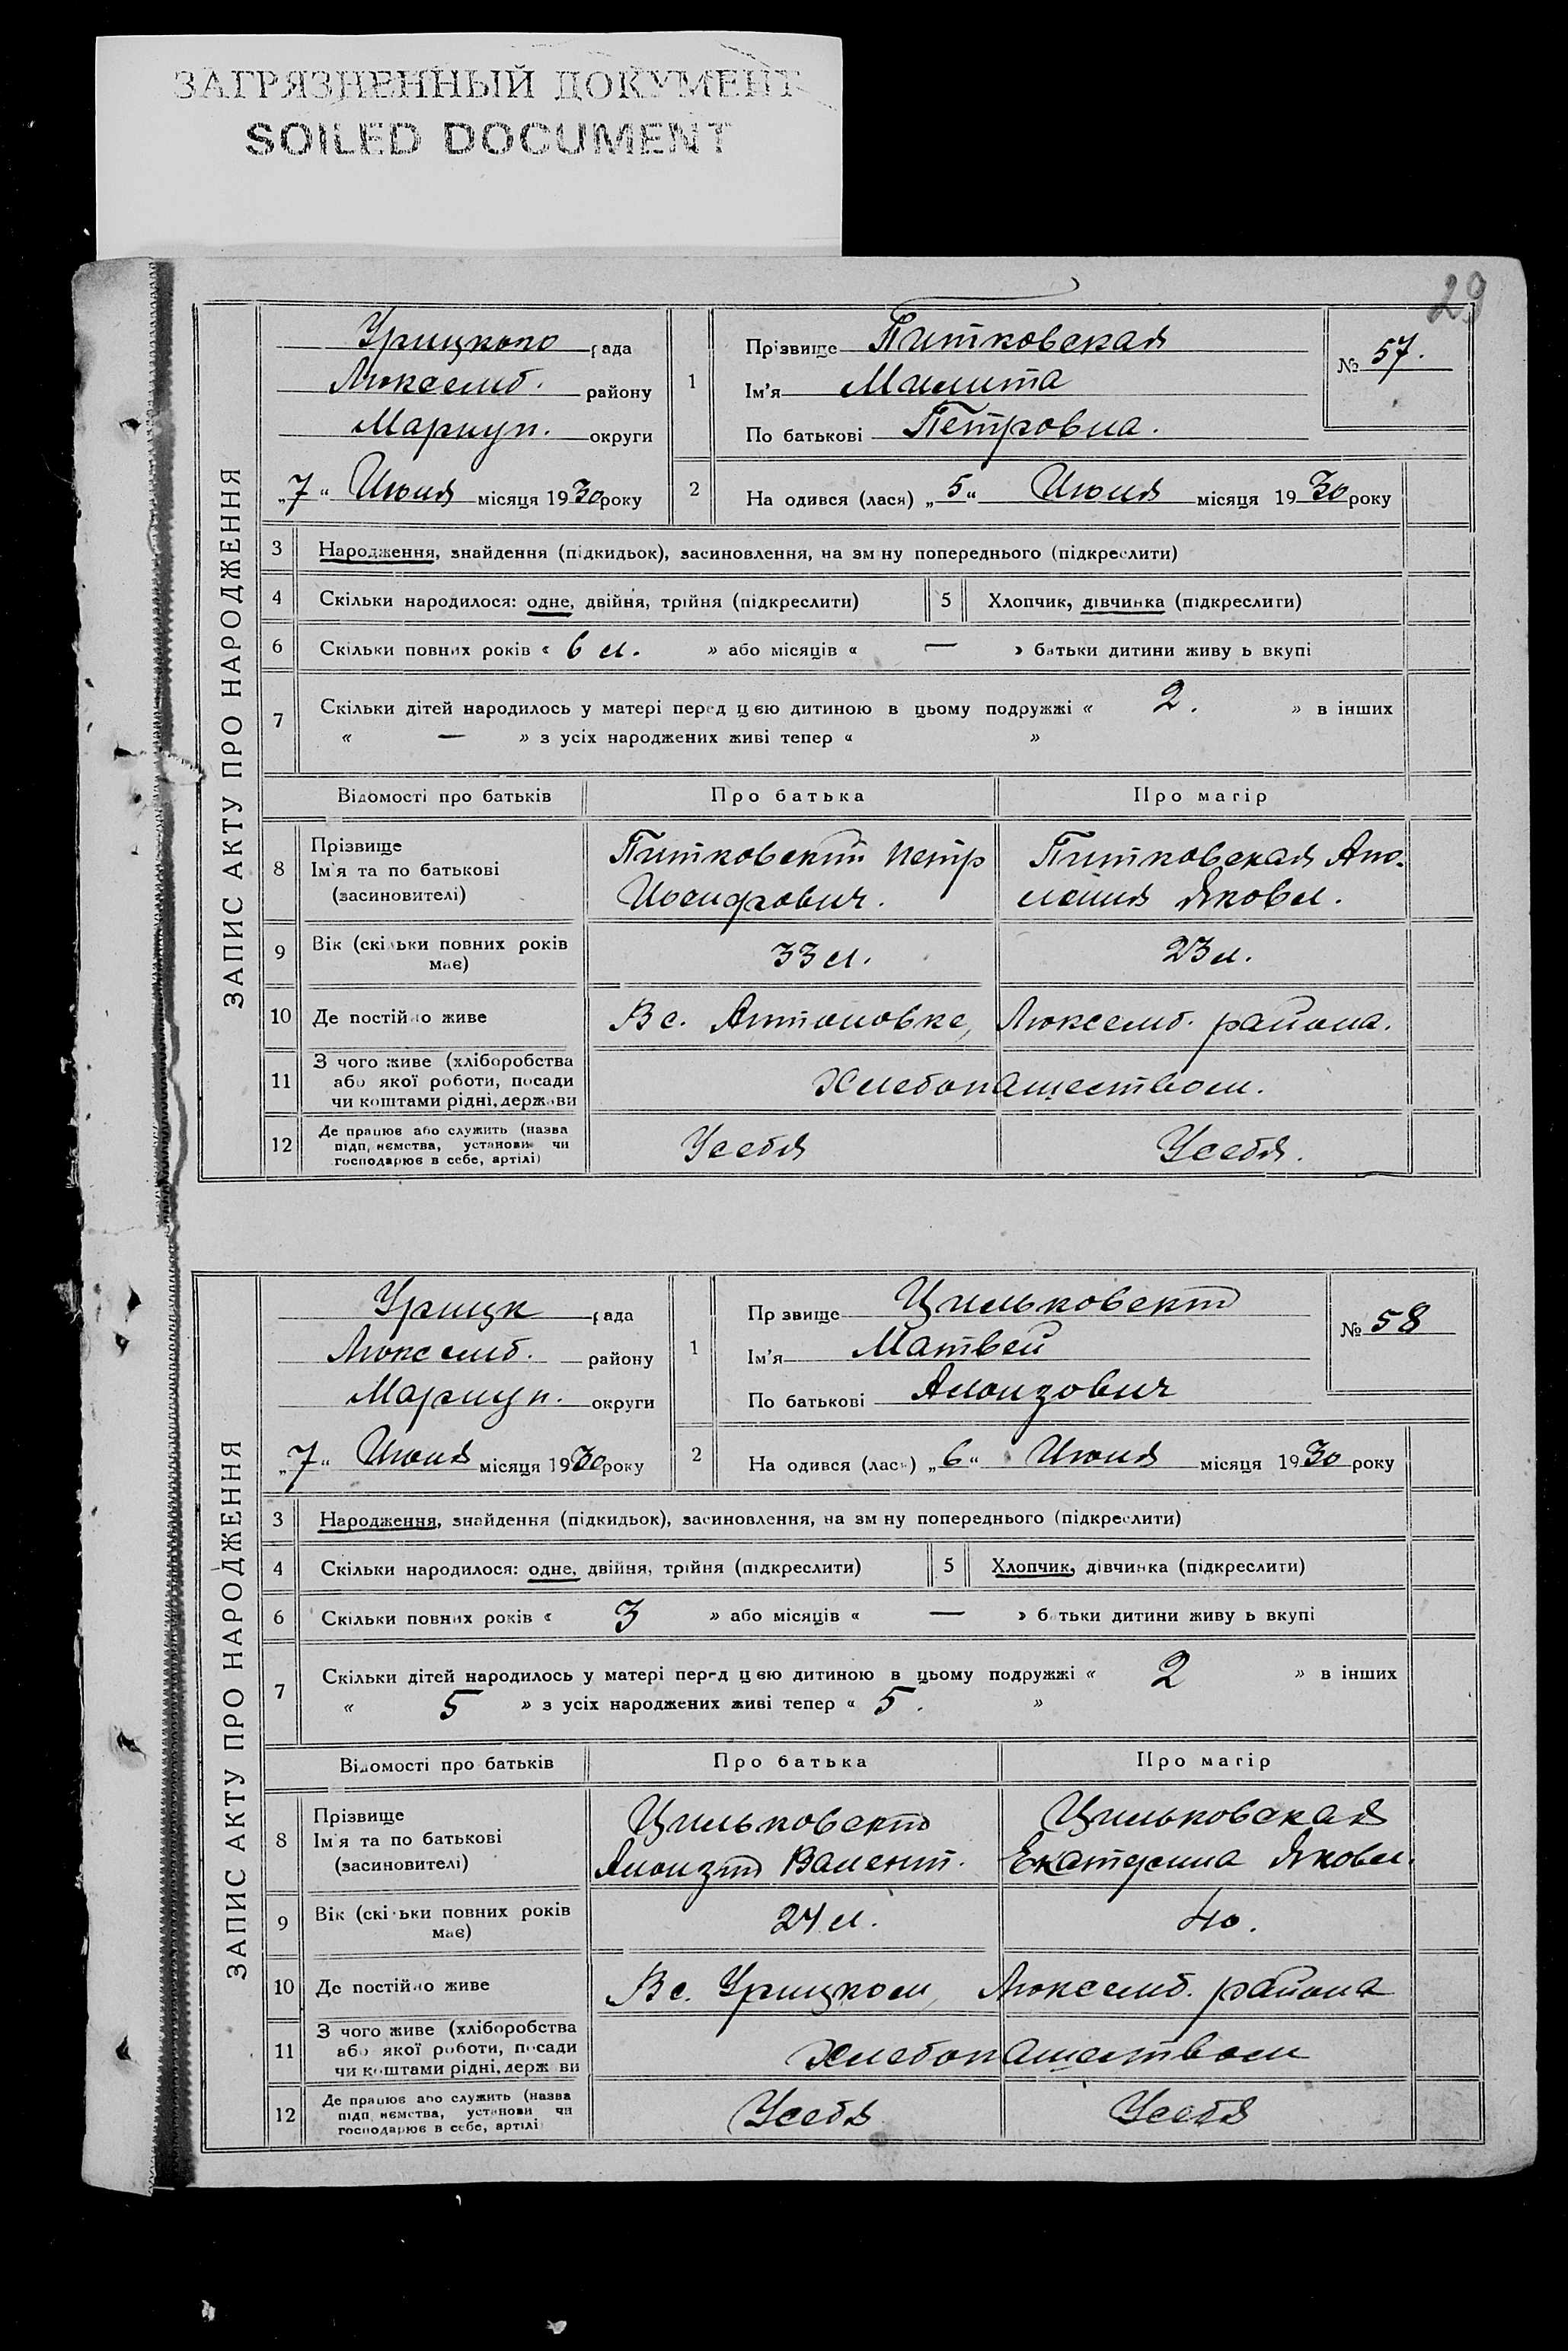 ЗАГРЯЗНЕННЫЙ ДОКУМЕНТ
SOILED DOCUMENT
29
ЗАПИС АКТУ ПРО НАРОДЖЕННЯ
Урицкого рада
Люксемб. району
Мариуп. округи
„7“ Июня місяця 1930 року
1
Прізвище Питковская
Ім'я Милита
По батькові Петровна.
№ 57.
2
На одився (лася) „5“ Июня місяця 1930 року
3 Народження, знайдення (підкидьок), засиновлення, на зм ну попереднього (підкреслити)
4 Скільки народилося: одне, двійня, трійня (підкреслити) 5 Хлопчик, дівчинка (підкреслити)
6 Скільки повних років « 6 л. » або місяців « — » батьки дитини живу ь вкупі
7 Скільки дітей народилось у матері перед цею дитиною в цьому подружжі « 2. » в інших
« — » з усіх народжених живі тепер « »
Відомості про батьків Про батька Про матір
8 Прізвище
Ім'я та по батькові
(засиновителі)
Питковский Петр
Иосифович.
Питковская Апо-
лония Яковл.
9 Вік (скільки повних років
має)
33 л. 23 л.
10 Де постійно живе В с. Антоновке, Люксемб. района.
11 З чого живе (хліборобства
або якої роботи, посади
чи коштами рідні, держави
Хлебопашеством.
12 Де працює або служить (назва
підп, иємства, установи чи
господарює в себе, артілі)
У себя У себя.
ЗАПИС АКТУ ПРО НАРОДЖЕННЯ
Урицк рада
Люксемб. району
Мариуп. округи
„7“ Июня місяця 1930 року
1
Пр звище Цильковский
Ім'я Матвей
По батькові Алоизович
№ 58
2
На одився (лась) „6“ Июня місяця 1930 року
3 Народження, знайдення (підкидьок), засиновлення, на зм ну попереднього (підкреслити)
4 Скільки народилося: одне, двійня, трійня (підкреслити) 5 Хлопчик, дівчинка (підкреслити)
6 Скільки повних років « 3 » або місяців « — » батьки дитини живу ь вкупі
7 Скільки дітей народилось у матері перед цею дитиною в цьому подружжі « 2 » в інших
« 5 » з усіх народжених живі тепер « 5. »
Відомості про батьків Про батька Про матір
8 Прізвище
Ім'я та по батькові
(засиновителі)
Цильковский
Алоизий Валент.
Цильковская
Екатерина Яковл.
9 Вік (скільки повних років
має)
24 л. 40.
10 Де постійно живе В с. Урицком, Люксемб. района
11 З чого живе (хліборобства
або якої роботи, посади
чи коштами рідні, держ ви
Хлебопашеством
12 Де працює або служить (назва
підп иємства, установи чи
господарює в себе, артілі
У себя У себя